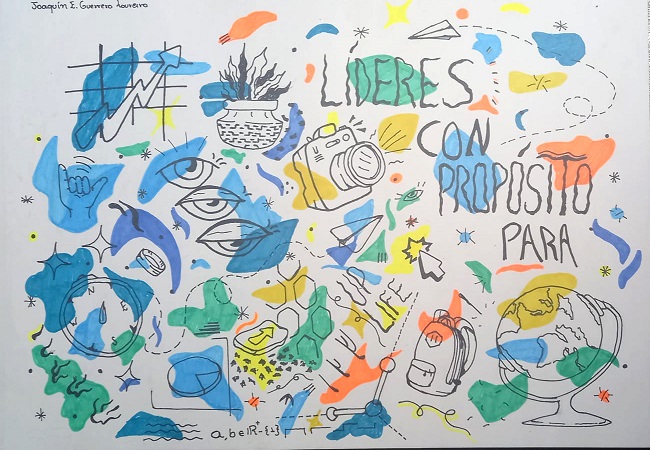 Joaquín E. Guerrero Loureiro
LÍDERES
CON
PROPÓSITO
PARA
LIFE
N
a, b ∈ IR⁺-{1}